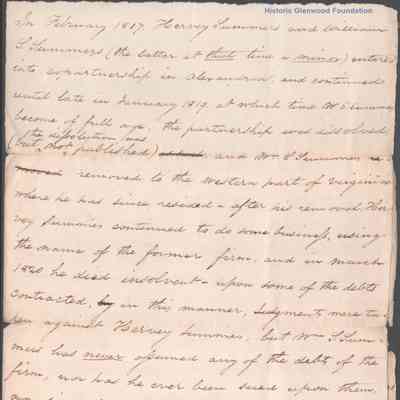 Historic Glenwood Foundation
In February 1817 Hervey Summers and William
S. Summers (the latter at that time a minor) entered
into copartnership in Alexandria, and continued
until late in January 1819, at which time W. S. Summers
became of full age. The partnership was dissolved
(the dissolution was
but not published) and Wm S. Summers re-
moved removed to the western part of Virginia
where he has since resided - after his removal, Her-
vey Summers continued to do some business, using
the name of the former firm, and in March
1820 he died insolvent - upon some of the debts
contracted, by in this manner, Judgments were ta-
ken against Hervey Summers, but Wm S. Sum-
mers has never assumed any of the debt of the
firm, nor has he ever been sued upon them,